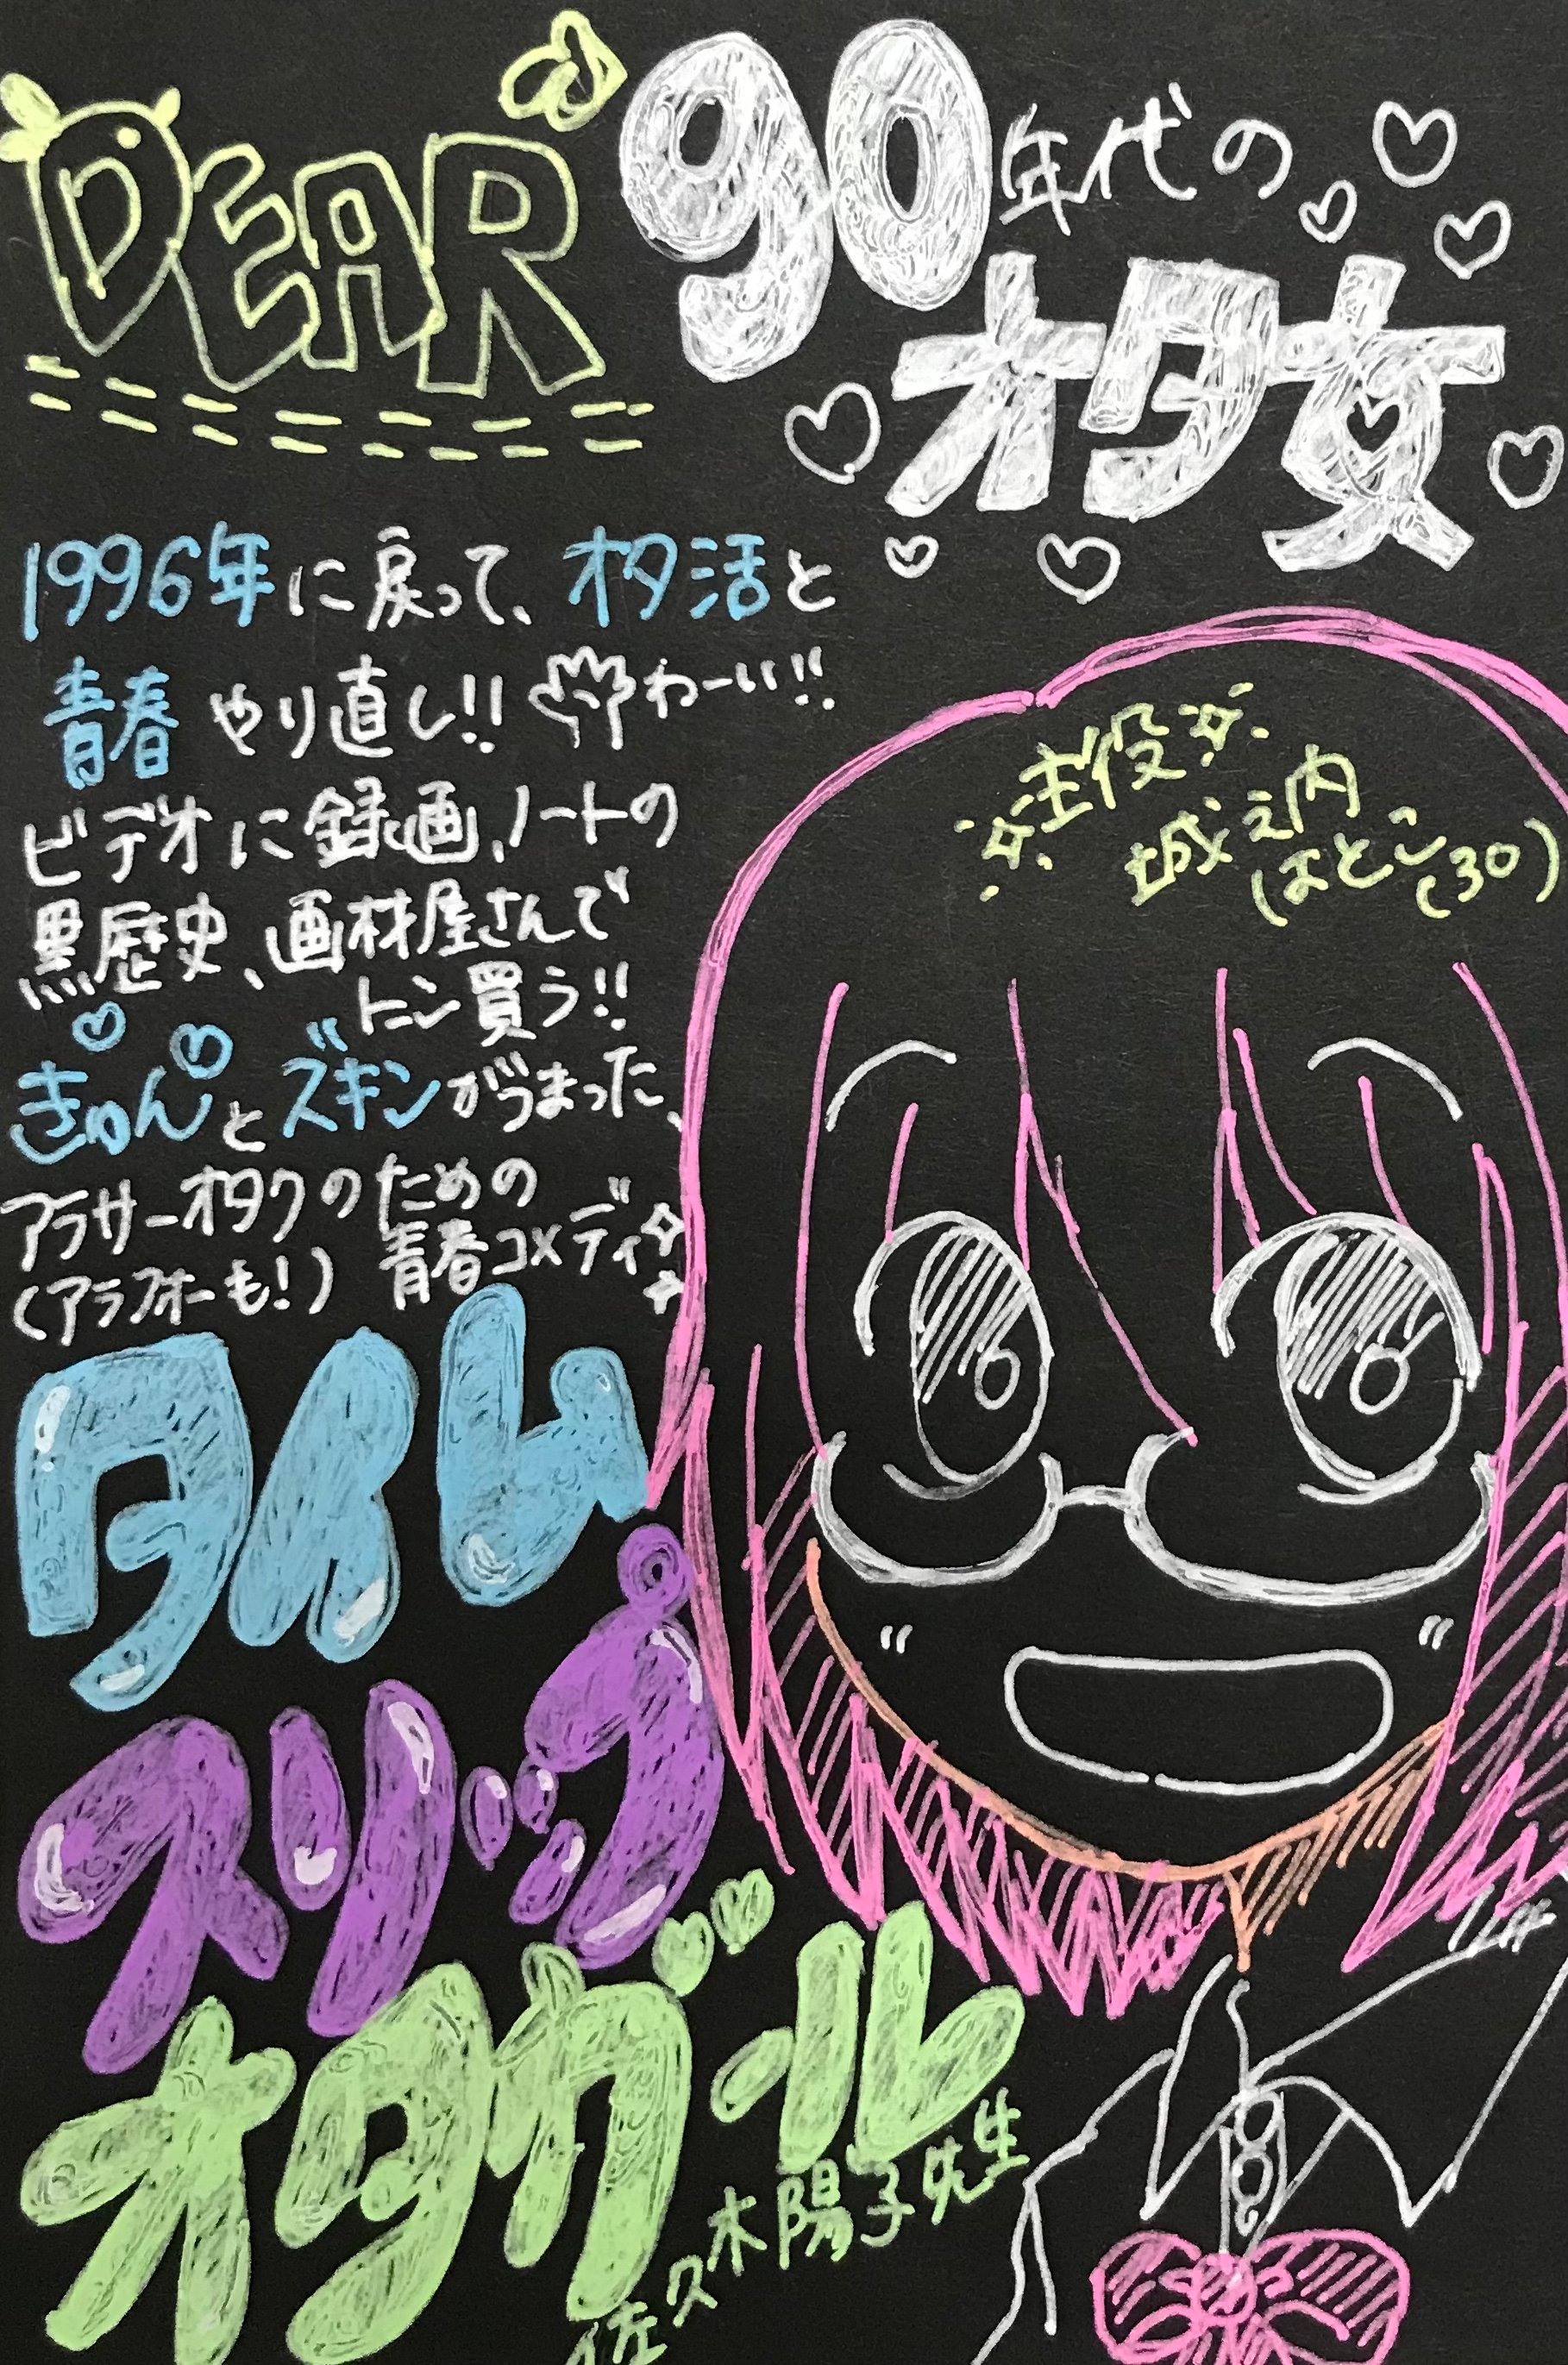 DEAR
90年代の
オタ女
1996年に戻って、オタ活と
青春やり直し!! わーい!!
ビデオに録画、ノートの
黒歴史、画材屋さんで
トーン買う!!
きゅんとズキンがつまった、
アラサーオタクのための
(アラフォーも!) 青春コメディ
主役
城之内
はとこ(30)
タイム
スリップ
オタガール
佐久木陽子先生